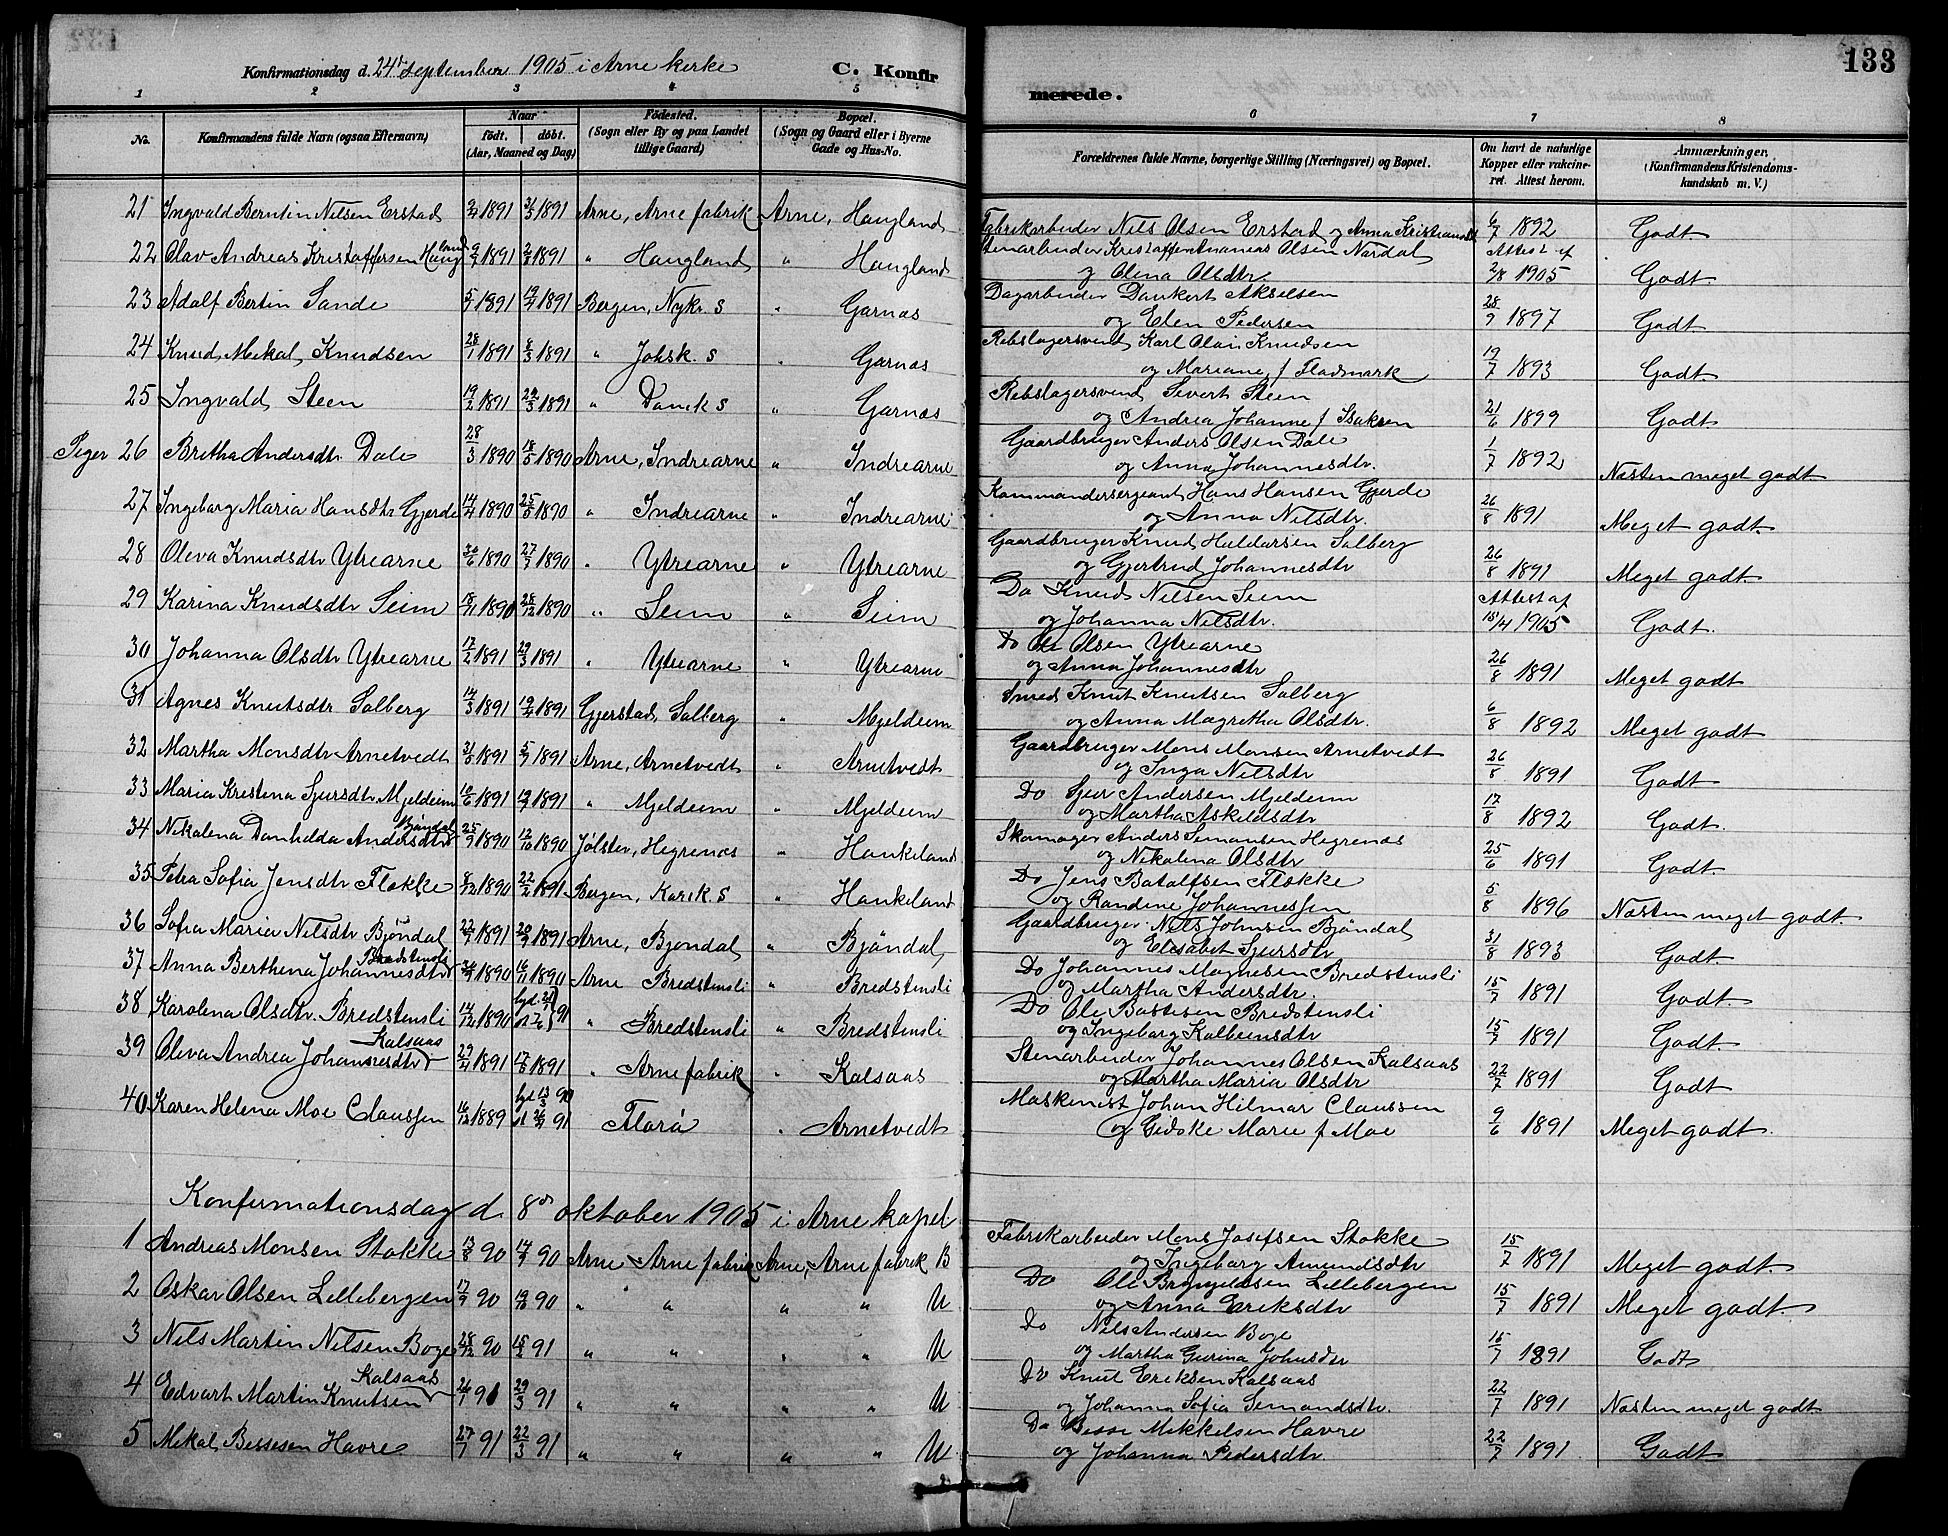 Konfirmationsdag d. 24de september 1905 i Arne kirke
C. Konfirmerede.
133
1 2 3 4 5 6 7 8
No.
Konfirmandens fulde Navn (ogsaa Efternavn)
Naar
födt. döbt.
(Aar, Maaned og Dag)
Födested.
(Sogn eller By og paa Landet tillige Gaard)
Bopæl.
(Sogn og Gaard eller i Byerne Gade og Hus-No.
Forældrenes fulde Navne, borgerlige Stilling (Næringsvei) og Bopæl.
Om havt de naturlige Kopper eller vakcineret. Attest herom.
Anmærkninger, (Konfirmandens Kristendomskundskab m. V.)
21 Ingvald Berntin Nilsen Erstad 1891 1891 Arne, Arne fabrik Arne, Haugland Fabrikarbeider Nils Olsen Erstad og Anna Kristiansdt 6/7 1892 Godt.
22 Olav Andreas Kristoffersen Haugland 1891 1891 " Haugland " Haugland Stenarbeider Kristoffer Ananias Olsen Nordal Attest af
og Olena Olsdtr 1905 Godt.
23 Adolf Bertin Sande 1891 1891 Bergen, Nykr. S " Garnæs Dagarbeider Dankert Akselsen
og Elen Pedersen 28/9 1897 Godt
24 Knud Mikal Knudsen 28/1 1891 8/3 1891 " Johsk. S " Garnæs Rebslagersvend Karl Olai Knudsen
og Mariane f Fladmark 19/7 1893 Godt.
25 Ingvald Steen 19/2 1891 1891 " Domk S " Garnæs Rebslagersvend Sivert Steen
og Andrea Johanne f Isaksen 21/6 1899 Godt
Piger 26 Bretha Andersdtr. Dale 28/3 1890 18/5 1890 Arne, Indrearne " Indrearne Gaardbruger Anders Olsen Dale
og Anna Johannesdtr. 1/7 1892 Næsten meget godt
27 Ingeborg Maria Hansdtr Gjerde 14/4 1890 25/5 1890 " Indrearne " Indrearne Kommandersergeant Hans Hansen Gjerde
og Anna Nilsdtr. 26/8 1891 Meget godt.
28 Oleva Knudsdtr Ytrearne 1890 27/7 1890 " Ytrearne " Ytrearne Gaardbruger Knud Haldorsen Solberg
og Gjertrud Johannesdtr 26/8 1891 Meget godt
29 Karina Knudsdtr Seim 18/11 1890 28/12 1890 " Seim " Seim Do Knud Nilsen Seim Attest af
og Johanna Nilsdtr. 1905 Godt.
30 Johanna Olsdtr Ytrearne 17/2 1891 29/3 1891 " Ytrearne " Ytrearne Do Ole Olsen Ytrearne
og Anna Johannesdtr 26/8 1891 Meget godt
31 Agnes Knutsdtr Solberg 14/3 1891 19/4 1891 Gjerstad, Solberg " Mjeldeim Smed Knut Knutsen Solberg
og Anna Magretha Olsdtr. 6/8 1892 Meget godt
32 Martha Monsdtr Arnetvedt 1891 5/7 1891 Arne, Arnetvedt " Arnetvedt Gaardbruger Mons Monsen Arnetvedt
og Inga Nilsdtr 26/8 1891 Godt
33 Maria Kristena Sjursdtr Mjeldeim 10/6 1891 19/7 1891 " Mjeldeim " Mjeldeim Do Sjur Andersen Mjeldeim
og Martha Askildsdtr 17/8 1892 Godt.
34 Nikolena Danhilda Andersdtr Bjöndal 25/9 1890 12/10 1890 Jölster, Hegrenæs " Haukeland Skomager Anders Simonsen Hegrenæs
og Nikolena Olsdtr 25/6 1891 Godt.
35 Petra Sofia Jensdtr Flokke 8/12 1890 22/2 1891 Bergen, Korsk. S " Haukeland Do Jens Botolfsen Flokke
og Randine Johannessen 5/8 1896 Næsten meget godt.
36 Sofia Maria Nilsdtr Bjöndal 22/7 1891 20/9 1891 Arne, Bjöndal " Bjöndal Gaardbruger Nils Johnsen Bjöndal
og Elisabet Sjursdtr 31/8 1893 Godt.
37 Anna Berthina Johannesdtr Bredstensli 1890 16/11 1890 Arne Bredstensli " Bredstensli Do Johannes Magnesen Bredstensli
og Martha Andersdtr. 15/7 1891 Godt.
38 Karolena Olsdtr. Bredstensli 14/12 1890 " Bredstensli " Bredstensli Do Ole Bastesen Bredstensli
og Ingeborg Kolbeinsdtr 15/7 1891 Godt.
39 Oleva Andrea Johannesdtr Kalsaas 29/4 1891 1891 " Arne fabrik " Kalsaas Stenarbeider Johannes Olsen Kalsaas
og Martha Maria Olsdtr 22/7 1891 Godt
40 Karen Helena Moe Claussen 16/12 1889 Florö " Arnetvedt Maskinist Johan Hilmar Claussen
og Gidske Marie f Moe 9/6 1891 Meget godt.
Konfirmationsdag d. 8de oktober 1905 i Arne kapel
1 Andreas Monsen Stokke 13/8 90 14/9 90 Arne Arne fabrik Arne, Arne fabrik B Fabrikarbeider Mons Josefsen Stokke
og Ingeborg Amundsdtr 15/7 1891 Meget godt.
2 Oskar Olsen Lillebergen 17/9 90 19/10 90 " " " " U Do Ole Brynjelsen Lillebergen
og Anna Eriksdtr 15/7 1891 Meget godt.
3 Nils Martin Nilsen Boge 28/12 90 15/2 91 " " " " U Do Nils Andersen Boge
og Martha Gurina Johnsdtr 15/7 1891 Godt
4 Edvart Martin Knutsen Kalsaas 26/1 91 29/3 91 " " " " U Do Knut Eriksen Kalsaas
og Johanna Sofia Simondsdtr. 22/7 1891 Næsten meget godt
5 Mikal Bessesen Havre 91 22/3 91 " " " " U Do Besse Mikkelsen Havre
og Johanna Pedersdtr 22/7 1891 Godt